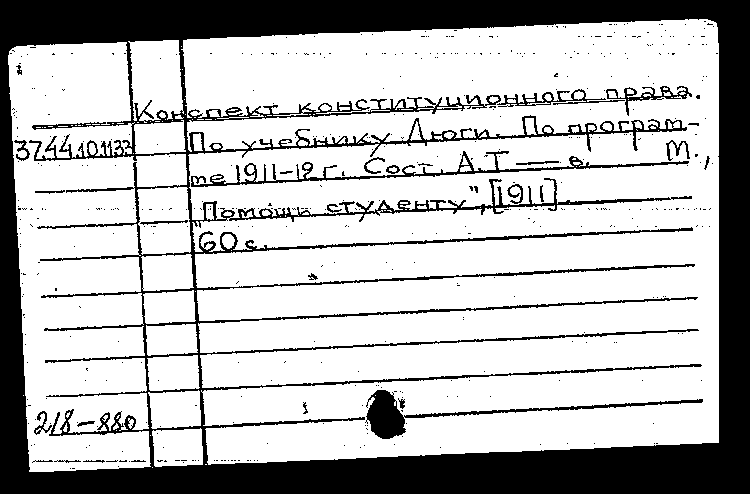 Конспект конституционного права.
37.44.10.1133 По учебнику Дюги. По програм-
ме 1911-12 г. Сост. А.Т — в. М.,
"Помощь студенту", [1911].
60 с.
218-880